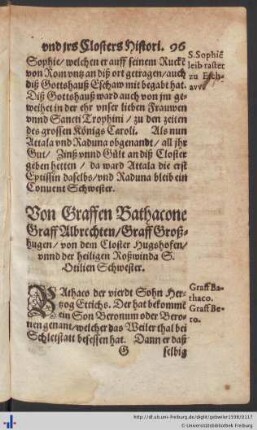 vnd jrs Closters Histori. 96
Sophie/ welchen er auff seinem Rucke
von Rom vntz an diß ort getragen/ auch
diß Gottshauß Eschaw mit begabt hat.
Diß Gottshauß ward auch von jm ge-
weihet in der ehr vnser lieben Frauwen
vnnd Sancti Trophini/ zu den zeiten
des grossen Königs Caroli. Als nun
Attala vnd Raduna obgenandt/ all jhr
Gut/ Zinß vnnd Gült an diß Closter
geben hetten/ da ward Attala die erst
Eptissin daselbs/ vnd Raduna bleib ein
Conuent Schwester.
S. Sophie
leib raster
zu Esch-
aw.
Von Graffen Bathacone
Graff Albrechten/ Graff Groß-
hugen/ von dem Closter Hugshofen/
vnnd der heiligen Roßwinda S.
Otilien Schwester.
BAthaco der vierdt Sohn Her-
tzog Etichs. Der hat bekommẽ
ein Son Beronum oder Bero-
nen genant/ welcher das Weiler thal bei
Schletstatt besessen hat. Dann er daß
Graff Ba-
thaco.
Graff Be-
ro.
G selbig
http://dl.ub.uni-freiburg.de/diglit/gebwiler1598/0117
© Universitätsbibliothek Freiburg